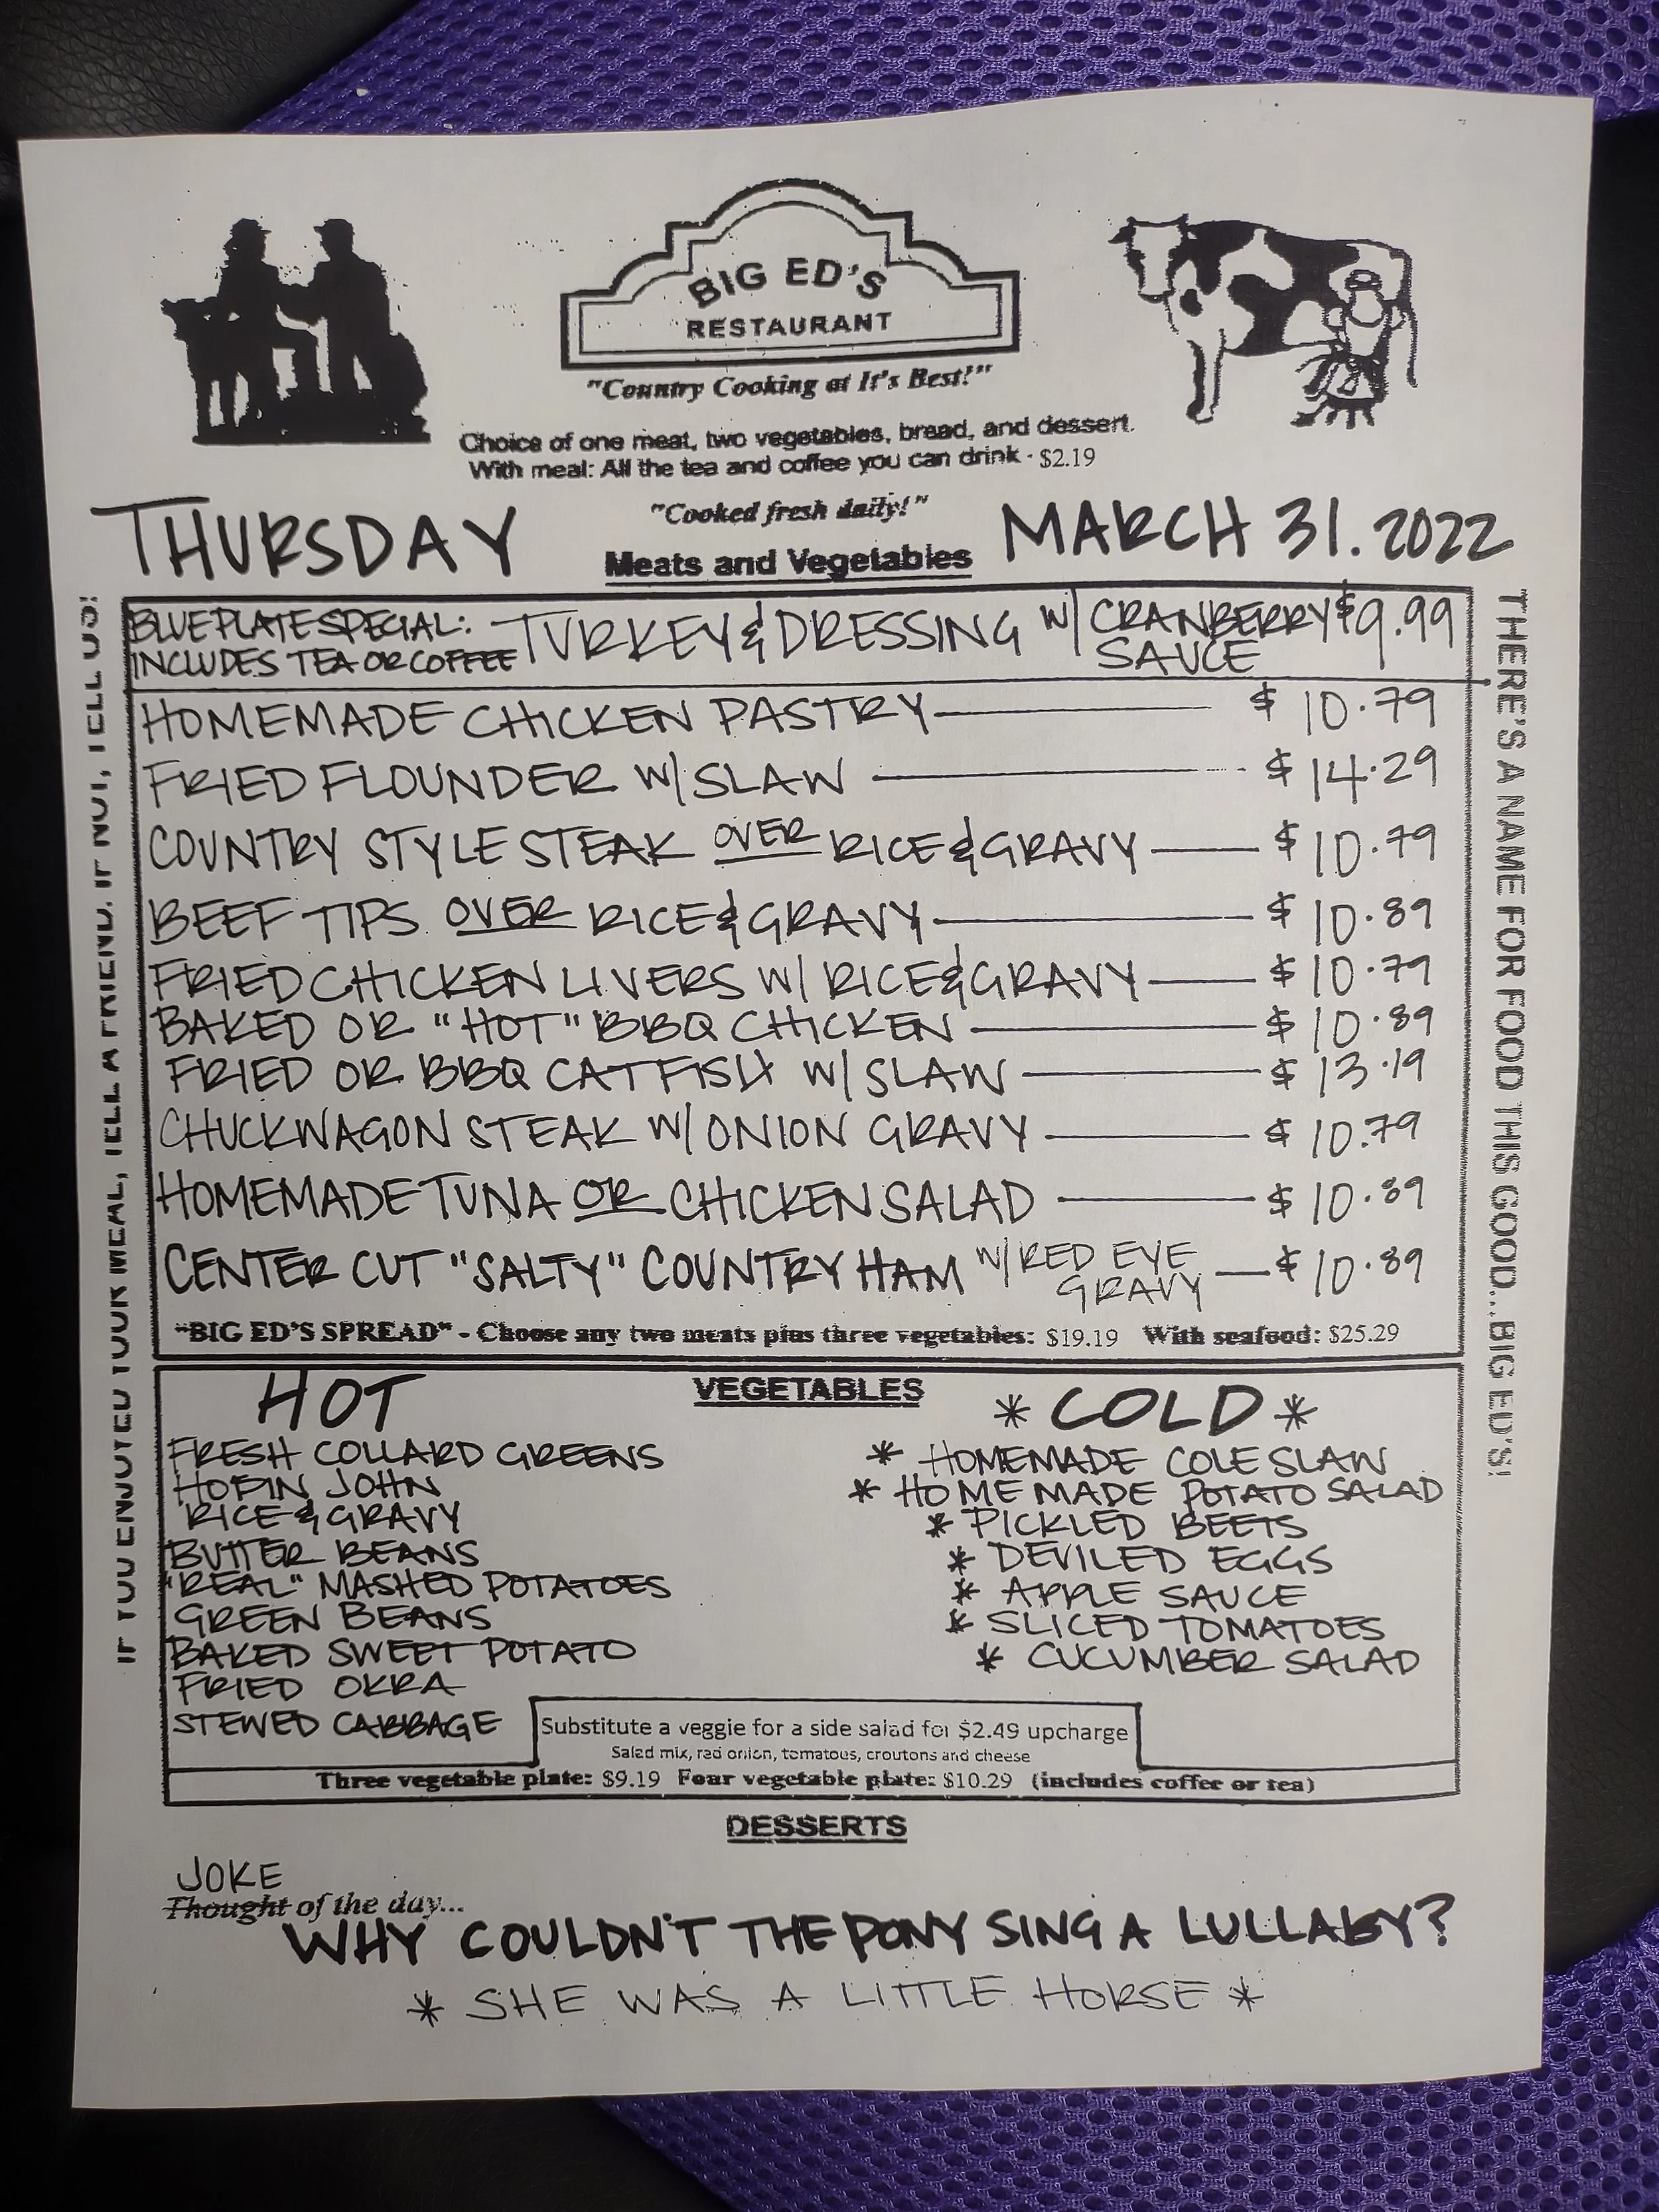 BIG ED'S
RESTAURANT
"Country Cooking at It's Best!"
Choice of one meat, two vegetables, bread, and dessert.
With meal: All the tea and coffee you can drink - $2.19
"Cooked fresh daily!"
THURSDAY MARCH 31. 2022
Meats and Vegetables
BLUE PLATE SPECIAL: TURKEY & DRESSING W/ CRANBERRY $9.99
INCLUDES TEA OR COFFEE SAUCE
HOMEMADE CHICKEN PASTRY $10.79
FRIED FLOUNDER W/ SLAW $14.29
COUNTRY STYLE STEAK OVER RICE & GRAVY $10.79
BEEF TIPS OVER RICE & GRAVY $10.89
FRIED CHICKEN LIVERS W/ RICE & GRAVY $10.79
BAKED OR "HOT" BBQ CHICKEN $10.89
FRIED OR BBQ CATFISH W/ SLAW $13.19
CHUCKWAGON STEAK W/ ONION GRAVY $10.79
HOMEMADE TUNA OR CHICKEN SALAD $10.89
CENTER CUT "SALTY" COUNTRY HAM W/ RED EYE $10.89
GRAVY
"BIG ED'S SPREAD" - Choose any two meats plus three vegetables: $19.19 With seafood: $25.29
IF YOU ENJOYED YOUR MEAL, TELL A FRIEND. IF NOT, TELL US!
THERE'S A NAME FOR FOOD THIS GOOD...BIG ED'S!
VEGETABLES
HOT
FRESH COLLARD GREENS
HOPIN JOHN
RICE & GRAVY
BUTTER BEANS
"REAL" MASHED POTATOES
GREEN BEANS
BAKED SWEET POTATO
FRIED OKRA
STEWED CABBAGE
* COLD *
* HOMEMADE COLE SLAW
* HOMEMADE POTATO SALAD
* PICKLED BEETS
* DEVILED EGGS
* APPLE SAUCE
* SLICED TOMATOES
* CUCUMBER SALAD
Substitute a veggie for a side salad for $2.49 upcharge
Salad mix, red onion, tomatoes, croutons and cheese
Three vegetable plate: $9.19 Four vegetable plate: $10.29 (includes coffee or tea)
DESSERTS
JOKE
Thought of the day...
WHY COULDN'T THE PONY SING A LULLABY?
* SHE WAS A LITTLE HORSE *